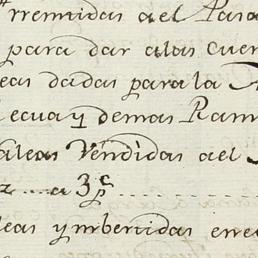 rremitidas a el Para
para dar a las cuen
eas dadas para la
ecua y demas Ram
aleas Vendidas a el
a 3 p.c
leas y mbertidas en re